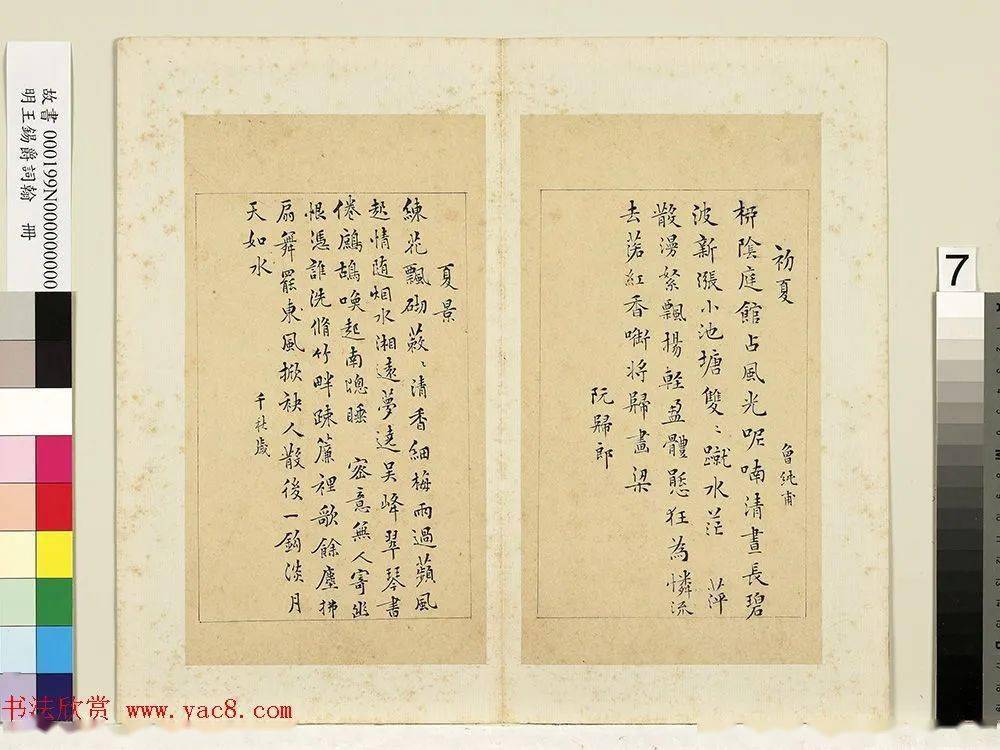 初夏
曾純甫
栁陰庭館占風光呢喃清晝長碧
波新漲小池塘雙〻蹴水茫　萍
散漫絮飄揚輕盈體態狂為憐流
去落紅香啣將歸畫梁
阮歸郎
夏景
練花飄砌蔌〻清香細梅雨過蘋風
起情随烟水湘遠夢遶吳峰翠琴書
倦鷓鴣喚起南窓睡　密意無人寄幽
恨憑誰洗脩竹畔疎簾裡歌餘塵拂
扇舞罷東風掀袂人散後一鈎淡月
天如水
千秋歲
故書 000199N000000000
明王錫爵詞翰 冊
7
书法欣赏 www.yac8.com